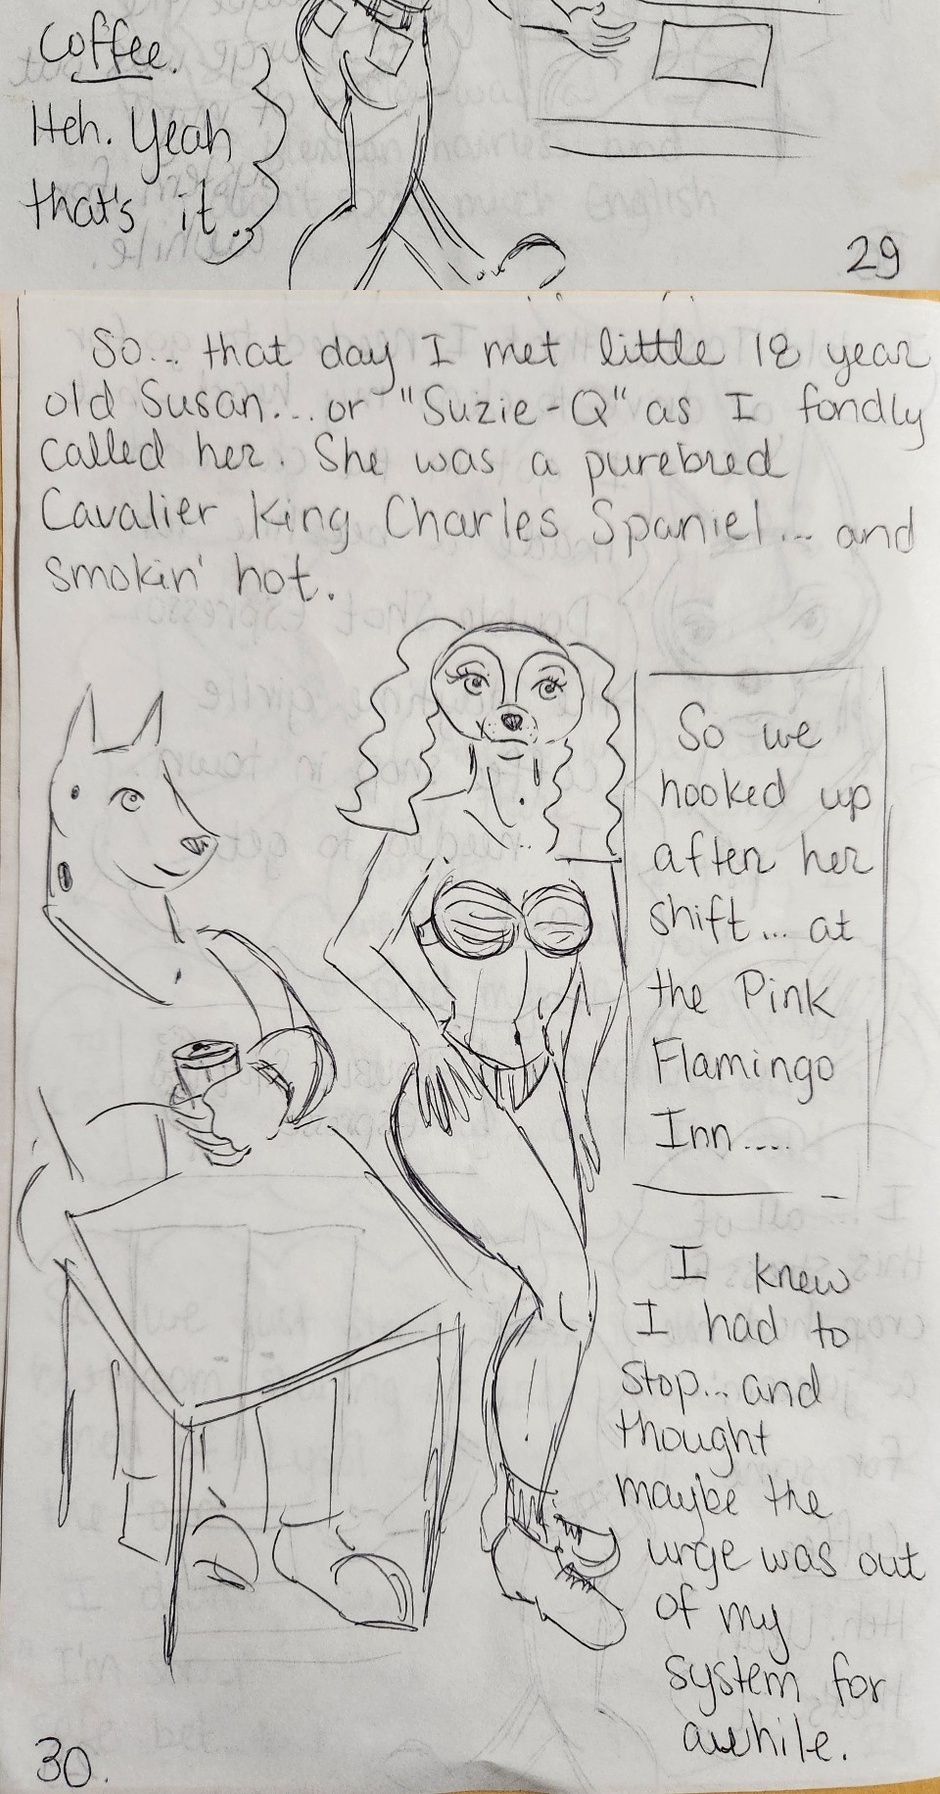 Coffee.
Heh. Yeah
that's it.
29
So... that day I met little 18 year
old Susan... or "Suzie-Q" as I fondly
called her. She was a purebred
Cavalier King Charles Spaniel... and
smokin' hot.
So we
hooked up
after her
shift... at
the Pink
Flamingo
Inn....
I knew
I had to
stop... and
thought
maybe the
urge was out
of my
system for
awhile.
30.